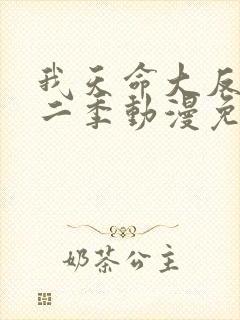 我天命大反
二季動漫免
奶茶公主